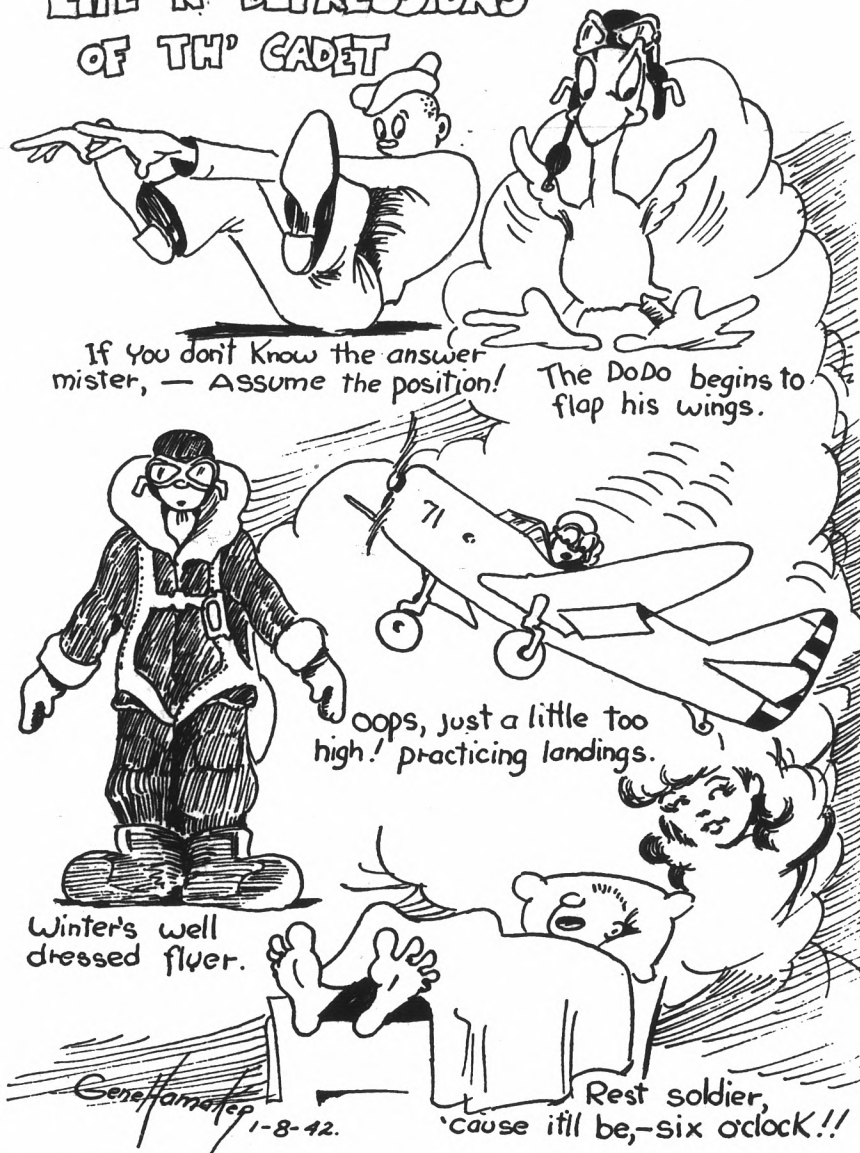 LIFE 'N' DEPRESSIONS
OF TH' CADET
If You don't Know the answer
mister, — Assume the position!
The DoDo begins to
flap his wings.
71
Oops, just a little too
high! practicing landings.
Winter's well
dressed flyer.
Gene
1-8-42.
Rest soldier,
'cause it'll be,-six o'clock!!